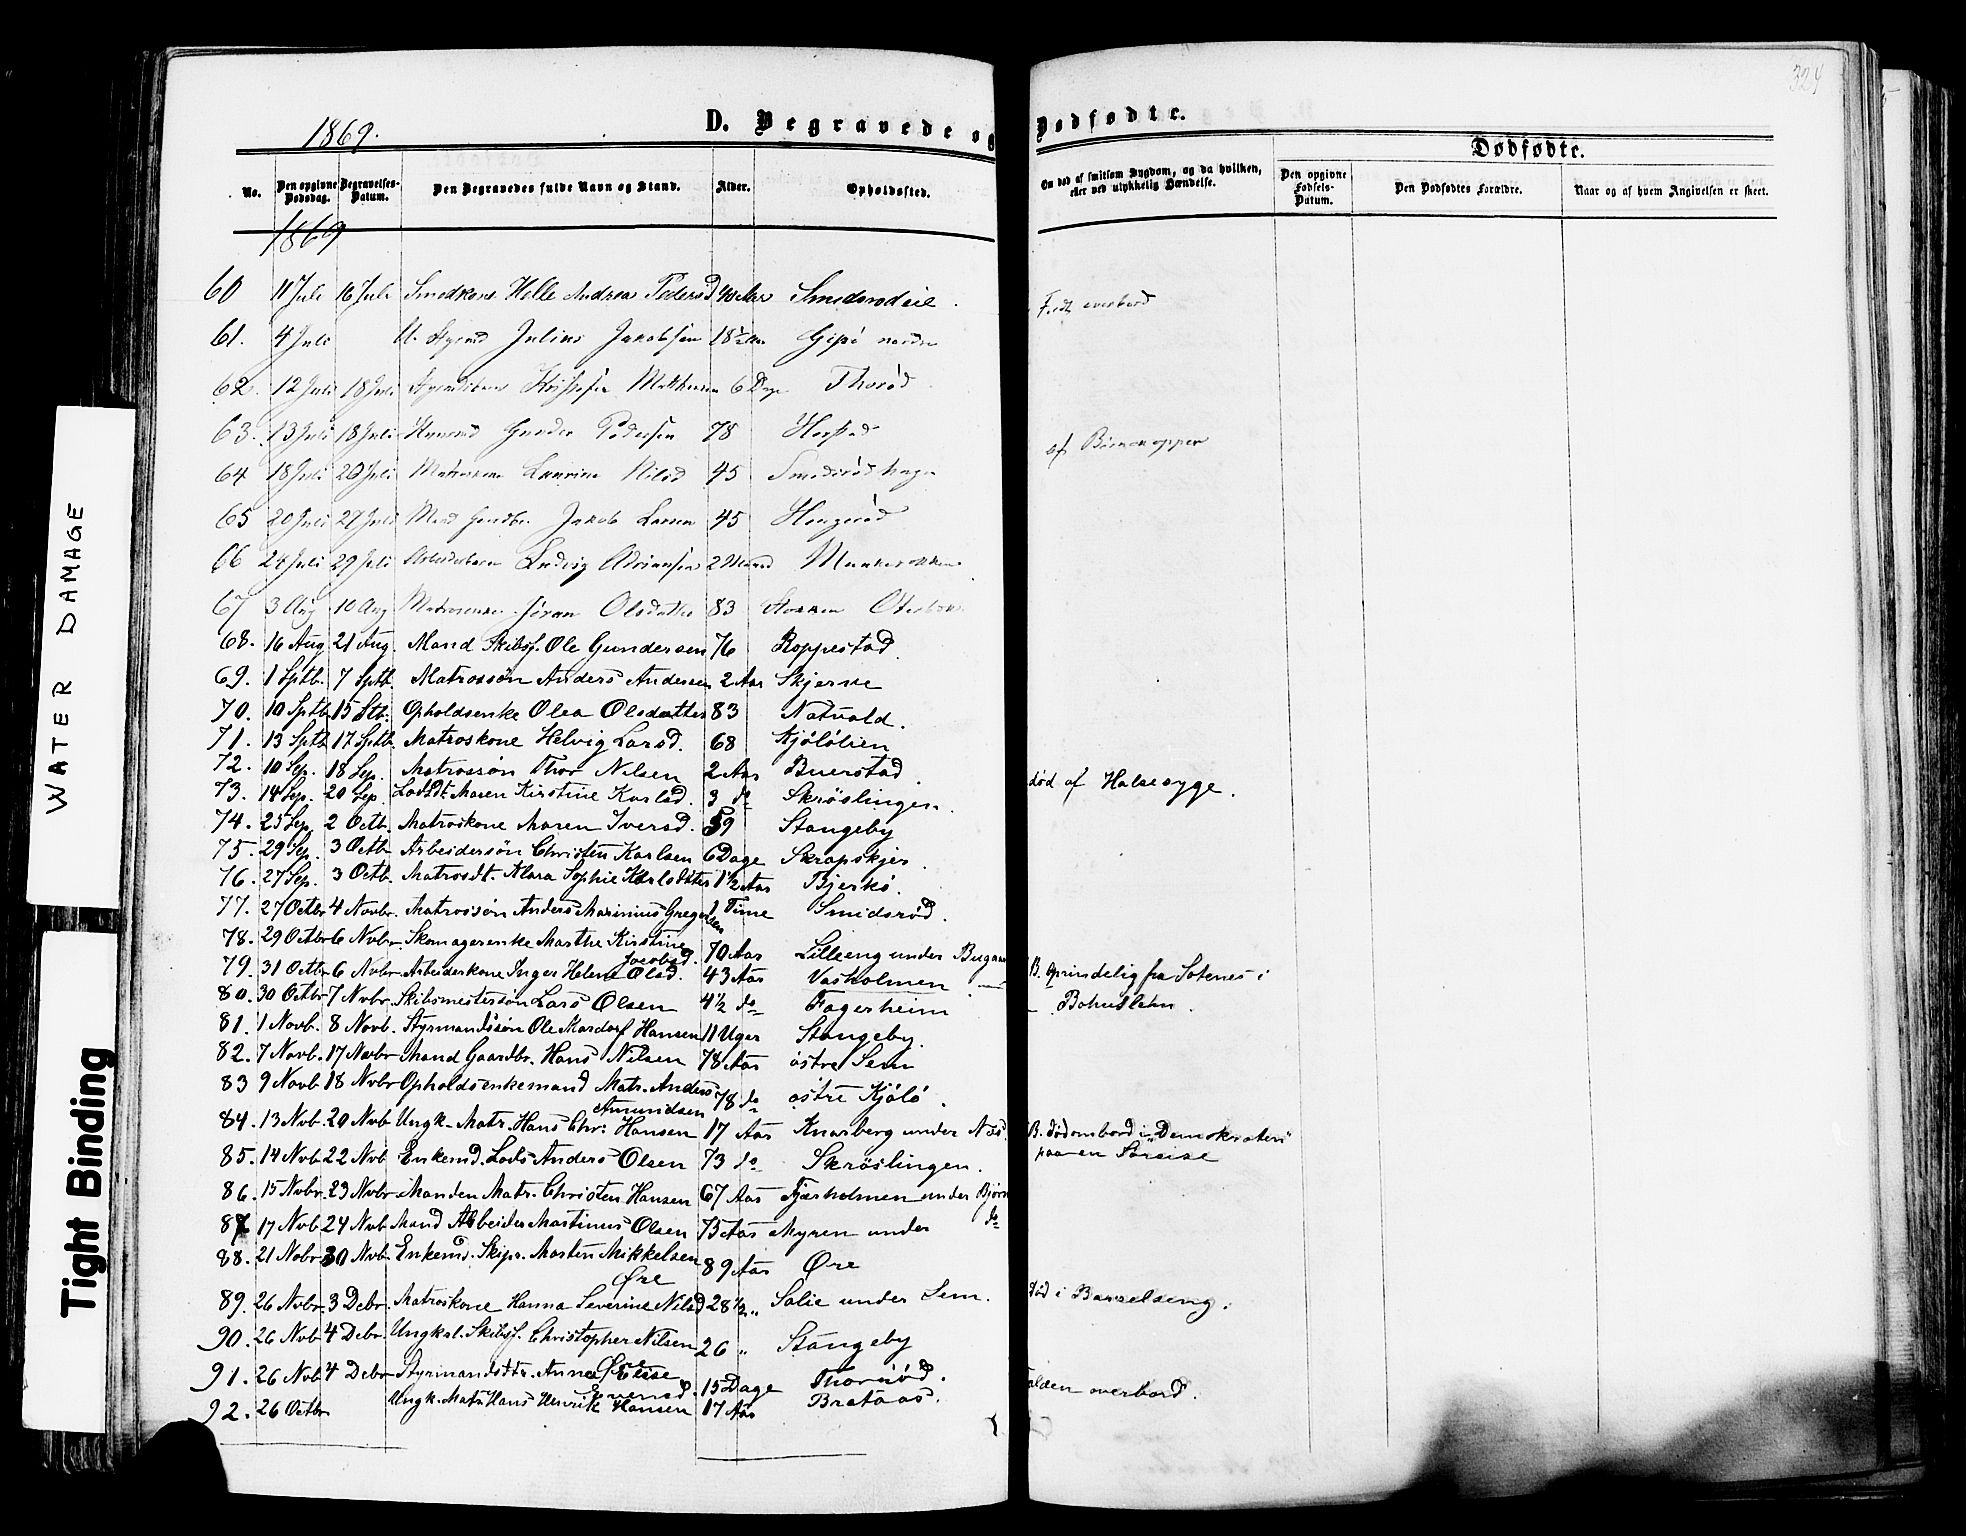 324
1869.
D. Begravede og Dødfødte.
Dødfødte.
No. Den opgivne Dødsdag. Begravelses-Datum. Den Begravedes fulde Navn og Stand. Alder. Opholdssted. Om død af smitsom Sygdom, og da hvilken, eller ved ulykkelig Hændelse. Den opgivne Fødsels-Datum. Den Dødfødtes Forældre. Naar og af hvem Angivelsen er skeet.
1869
60 11 Juli 16 Juli Smedkone Helle Andrea Pedersd 40 Aar Smidsrødeie.
61. 4 Juli Julius Jakobsen 18½ Aar Gipø nordre overbord
62. 12 Juli 18 Juli Mathisen 6 Dage Thorød
63. 13 Juli 18 Juli Gunder Pedersen 78
64 18 Juli 26 Juli Laurine Nilsd 45 Smidsrødhagen af Børnekopper
65 20 Juli 27 Juli Mand Gaardbr. Jakob Larsen 45 Hengsrød
66 24 Juli 29 Juli Arbeidsbarn Ludvig Adriansen 2 Maaned
67 3 Aug 10 Aug Matrosenke Jøran Olsdatter 83
68. 16 Aug 21 Aug. Mand Skibsf. Ole Gundersen 76 Roppestad.
69. 1 Sptb. 7 Sptb. Matrossøn Anders Andersen 2 Aar Skjerve
70. 10 Sptb. 15 Stb. Opholdsenke Olea Olsdatter 83 Natvald.
71. 13 Sptb 17 Sptb. Matroskone Helvig Larsd. 68 Kjøløllien
72. 10 Sep. 18 Sep. Matrossøn Thor Nilsen 2 Aar Buerstad.
73. 14 Sep. 20 Sep. Lodsdt. Maren Kirstine Karlsd. 3 do Skrøslingen. død af Halsesyge.
74. 25 Sep. 2 Octb. Matroskone Maren Iversd. 59 Stangeby
75. 29 Sep. 3 Octb. Arbeidersøn Christen Karlsen 6 Dage Skrapskjer.
76. 27 Sep. 3 Octb. Matrosdt. Alara Sophie Karlsdtter 1½ Aar Bjerkø.
77. 27 Octbr 4 Novbr. Matrossøn Anders Marinius Gregersen 1 Time Smidsrød.
78. 29 Octbr 6 Nvbr. Skomagerenke Marthe Kirstine Jacobsd. 70 Aar Lilleeng under Bugaar
79. 31 Octbr 6 Nvbr Arbeiderkone Inger Helene Olsd. 43 Aar Vasholmen B. Oprindelig fra Sotenes i
80. 30 Octbr 7 Nvbr. Skibsmestersøn Lars Olsen 4½ do Fagerheim Bohuslehn.
81. 1 Novb. 8 Novb. Styrmandssøn Ole Mardorf Hansen 11 Uger Stangeby.
82. 7 Novb. 17 Novbr Mand Gaardbr. Hans Nilsen 78 Aar østre Sem
83 9 Novb 18 Nvbr Opholdsenkemand Matr. Anders Amundsen 78 do østre Kjølø.
84. 13 Nvb. 20 Nvb Ungk. Matr. Hans Chr: Hansen 17 Aar Knarberg under Nes B. død ombord i "Demokraten"
85. 14 Nvb 22 Nvb Enkemd. Lods Anders Olsen 73 do Skrøslingen. paa en Søreise
86. 15 Nvbr. 23 Nvbr. Manden Matr. Christen Hansen 67 Aar Fjærholmen under Bjørn
87 17 Nvb. 24 Nvb. Mand Arbeider Martinus Olsen 75 Aar Myren under do
88. 21 Nvbr 30 Nvb. Enkemd. Skipr. Morten Mikkelsen Øre 89 Aar Øre
89. 26 Nvbr. 3 Debr. Matroskone Hanna Severine Nilsd 28½ " Solie under Sem. død i Barselseng.
90. 26 Nvb. 4 Debr. Ungkal. Skibsf. Christopher Nilsen Øre 26 " Stangeby
91. 26 Nvb 4 Debr Styrmandsdtr. Anna Elise Evensd. 15 Dage Thorsød.
92. 26 Octbr Ungk. Matr. Hans Henrik Hansen 17 Aar Brataas. falden overbord.
WATER DAMAGE
Tight Binding